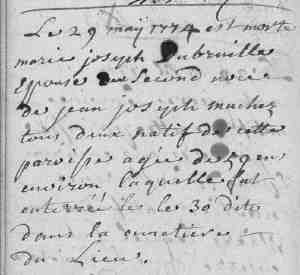 Le 29 may 1774 est morte
marie joseph Dubruille
Epouse en Second noce
de jean joseph machez
tous deux natif de cette
paroisse agée de 59 en
environ laquelle fut
enterrée le le 30 dito
dans la cimetiere
du Lieu.